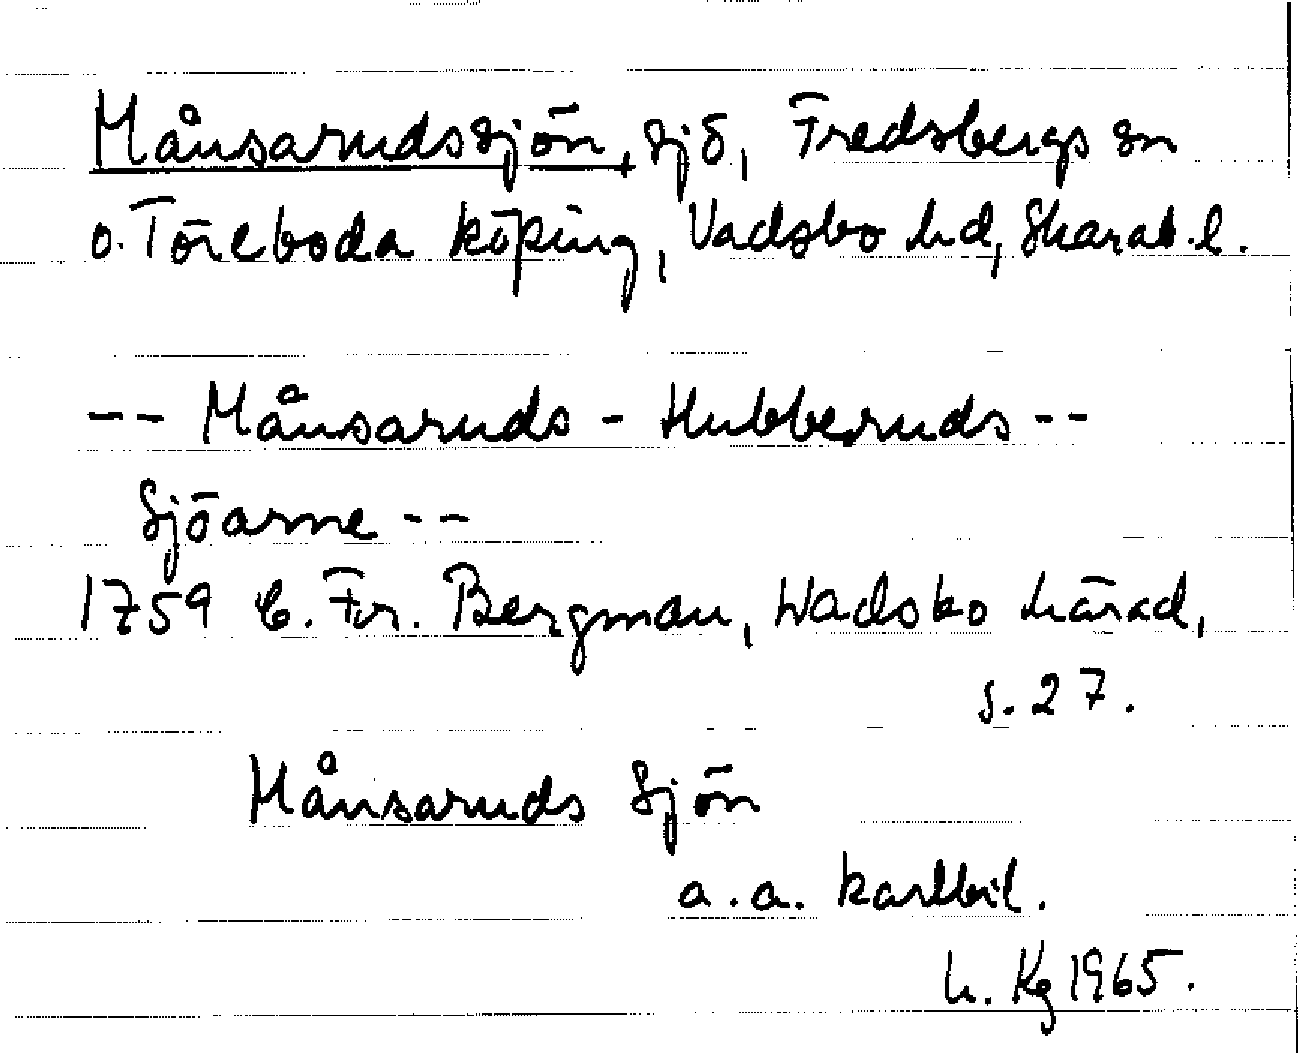 Månsarudssjön, sjö, Fredsbergs sn
o. Töreboda köping, Vadsbo hd, Skarab. l.
-- Månsaruds - Hubberuds --
Sjöarne --
1759 C. Fr. Bergman, Wadsbo härad,
s. 27.
Månsaruds Sjön
a. a. kartbil.
h. Kg 1965.